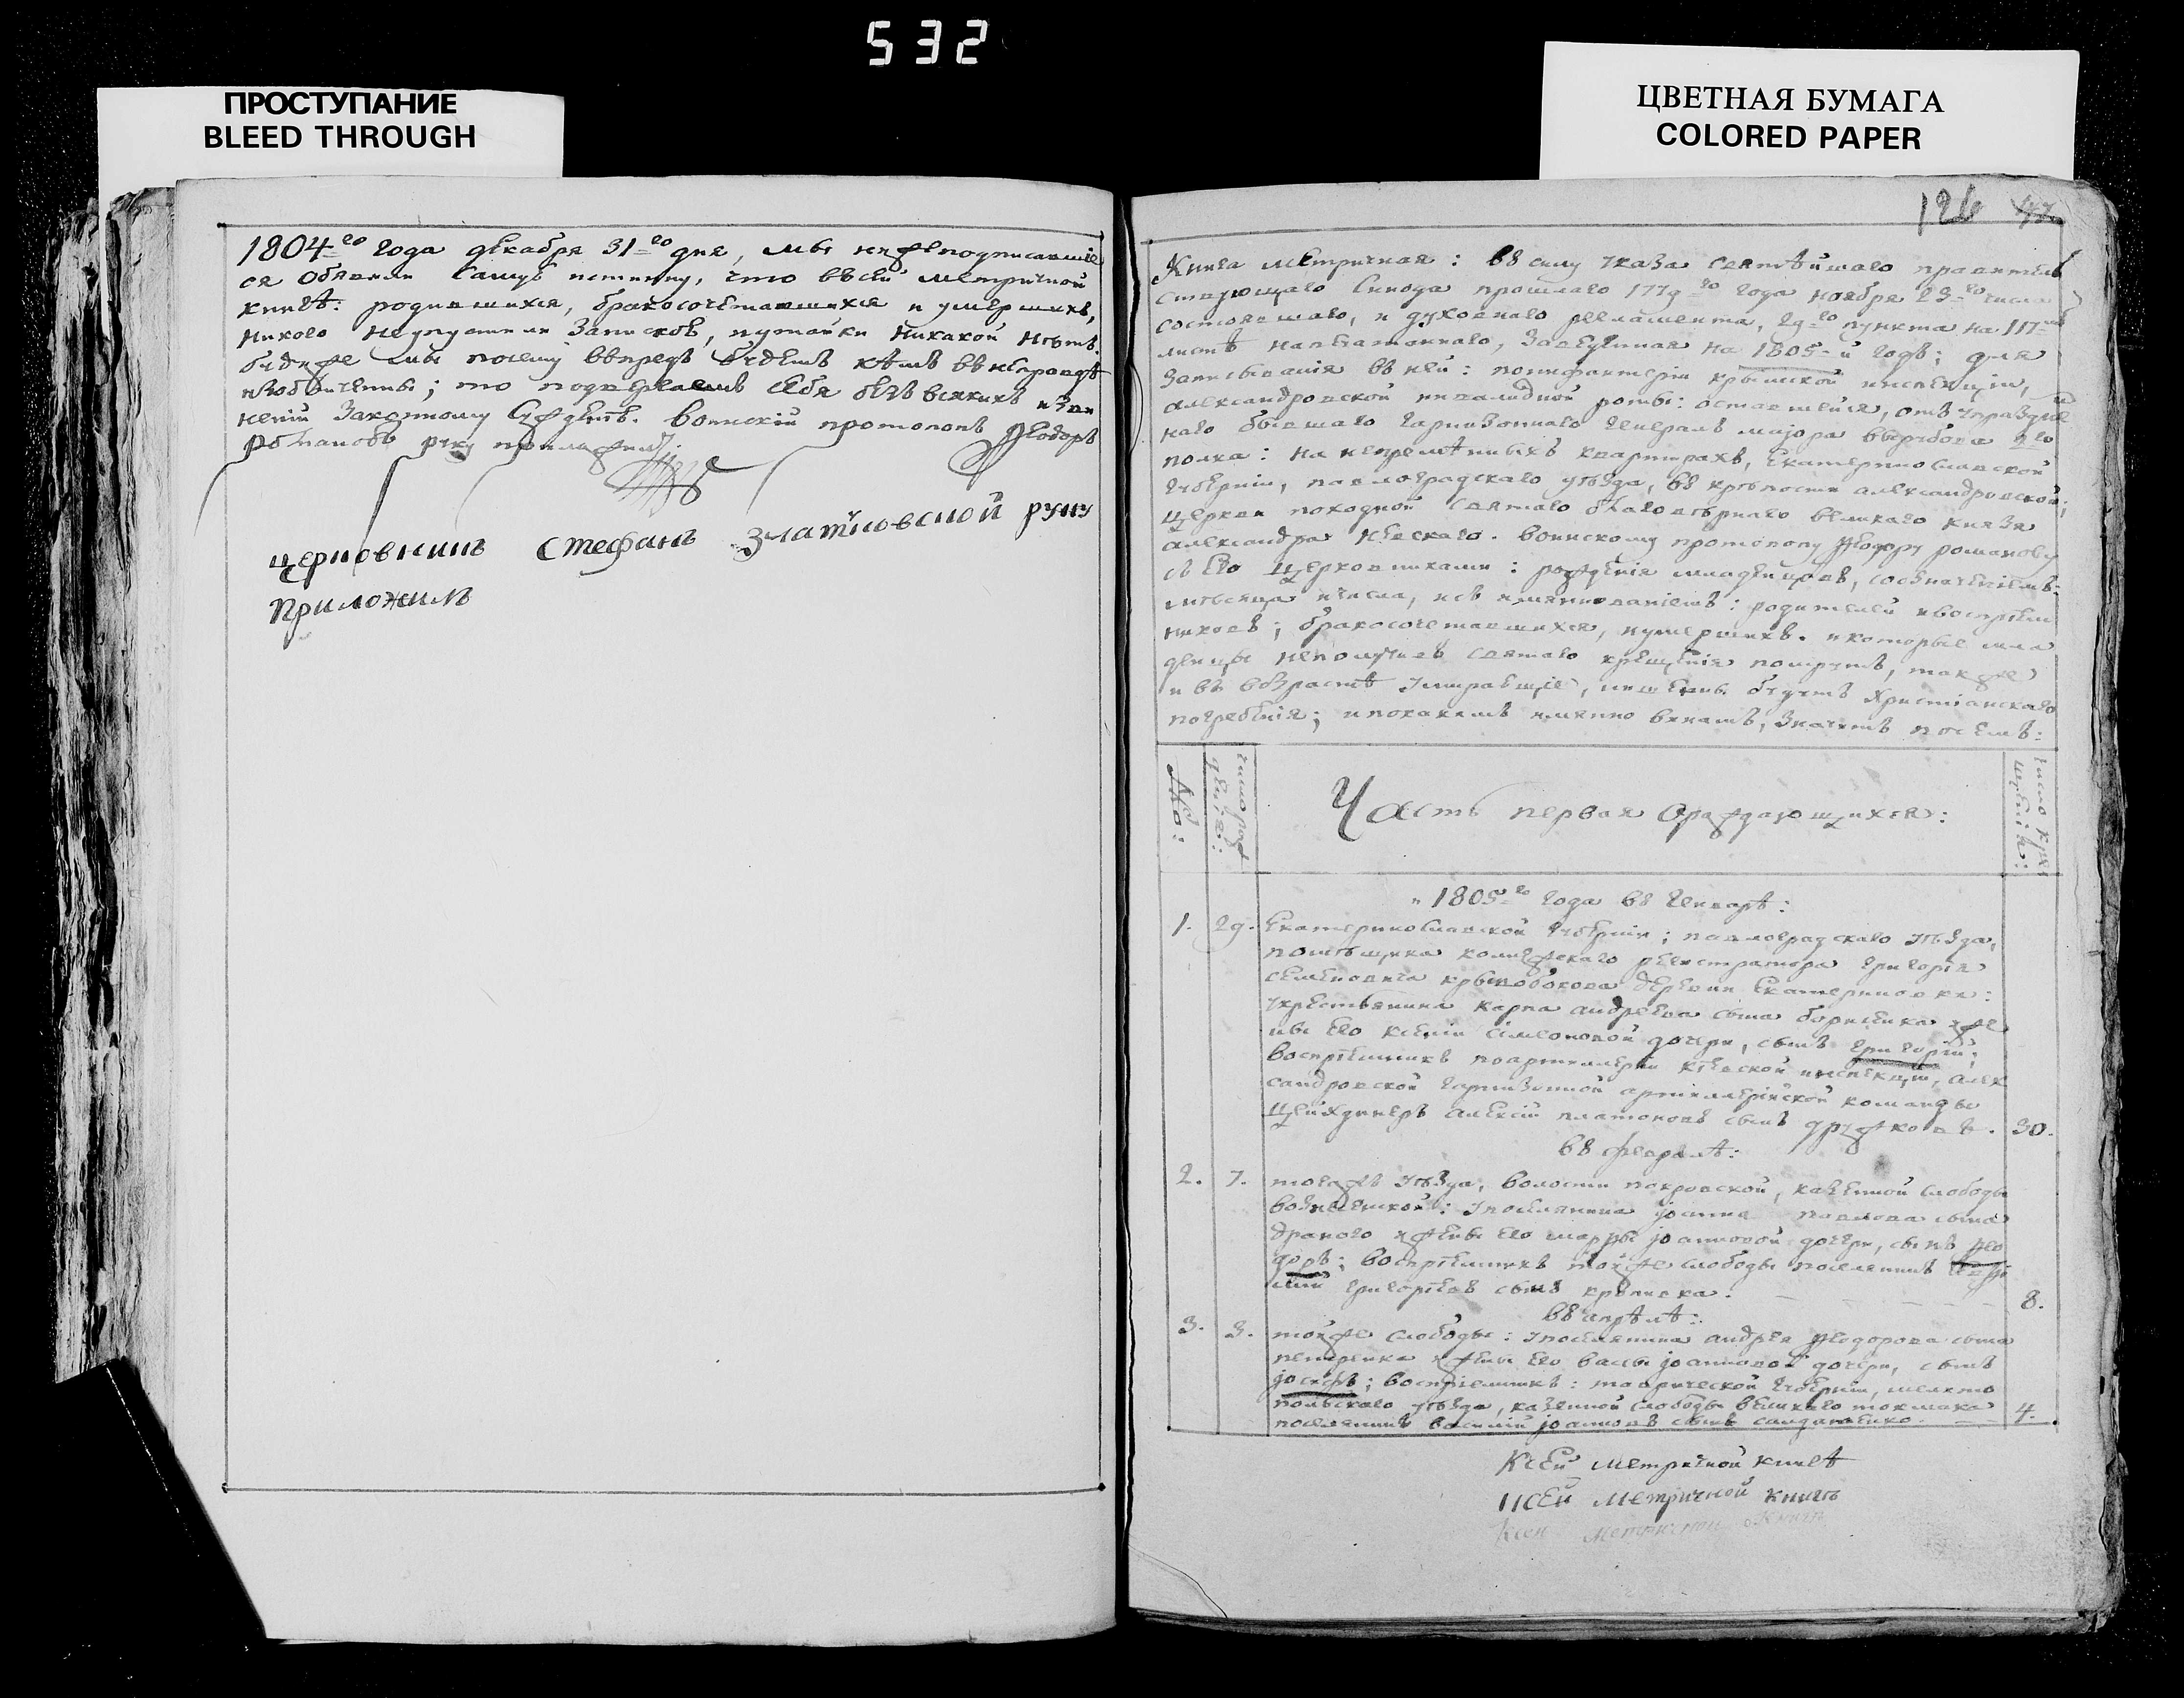 532
ПРОСТУПАНИЕ
BLEED THROUGH
ЦВЕТНАЯ БУМАГА
COLORED PAPER
1804-го года декабря 31-го дня, мы нижеподписавшiе
ся объявили самую истинну, что въ сей метричной
книгѣ: родившихся, бракосочетавшихся и умершихъ,
никого неупустили записковъ, и утайки никакой нѣтъ.
буде же мы почему впредь будемъ кѣмъ въ неправдѣ
изобличены; то подвергаемъ себя безъ всякихъ изви
ненiй законному сужденiю. воинскiй протопопъ Ѳеодоръ
Романовъ руку приложилъ.
церковникъ Стефанъ Златковской руку
приложилъ
126
Книга метричная: въ силу указа святѣйшаго правитель
ствующаго Синода прошлаго 1779-го года ноября 29-го числа
состоявшаго, и духовнаго регламента, 29-го пункта на 117-мъ
листѣ напечатаннаго, заведенная на 1805-й годъ; для
записыванiя въ ней: по инфантерiи крымской инспекцiи,
александровской инвалидной роты: оставшейся, отъ упраздне
наго бывшаго гарнизоннаго генералъ маiора
полка: на непремѣнныхъ квартирахъ, Екатеринославской
губернiи, павлоградскаго уѣзда, въ крѣпости александровской;
церкви походной святаго благовѣрнаго великаго князя
александра невскаго. воинскому протопопу Ѳеодору романову
съ его церковниками: рожденiя младенцовъ, сообначенiемъ
мѣсяца и числа, и съ имянованiемъ: родителей и воспрiем
никовъ; бракосочетавшихся, и умершихъ. и которые мла
денцы неполучивъ святаго крещенiя помрутъ, также
и въ возрастѣ умиравшiе, лишены будутъ христiанскаго
погребенiя; и по какимъ имянно винамъ, значитъ по семъ:
№о:
число рож
денiя:
Часть первая ораждающихся:
число кре
щенiя:
1805-го года въ генварѣ:
1. 29. Екатеринославской губернiи; павлоградскаго уѣзда,
помѣщика колежскаго регистратора григорiя
семеновича кривобокова деревни екатериновки:
у крестьянина карпа андреева сына борисенка же
ны его ксенiи симеоновой дочери, сынъ григорiй;
воспрiемникъ по артиллерiи кiевской инспекцiи, алек
сандровской гарнизонной артиллерiйской команды
цейхдинеръ алексiй платоновъ сынъ дружковъ. 30.
въ февралѣ:
2. 7. тогожъ уѣзда, волости покровской, казенной слободы
вознесенской: у поселянина iоанна павлова сына
драного жены его марѳы iоанновой дочери, сынъ Ѳео
доръ; воспрiемникъ тойже слободы поселянинъ
григорiевъ сынъ 8.
въ апрѣлѣ:
3. 3. тойже слободы: у поселянина андрея Ѳеодорова сына
петренка жены его вассы iоанновой дочери, сынъ
iосифъ; воспрiемникъ: таврической губернiи, мелито
польскаго уѣзда, казенной слободы великаго токмака
поселянинъ василiй iоанновъ сынъ 4.
К сей метричной книгѣ
К сей метричной книгѣ
К сей метричной книгѣ